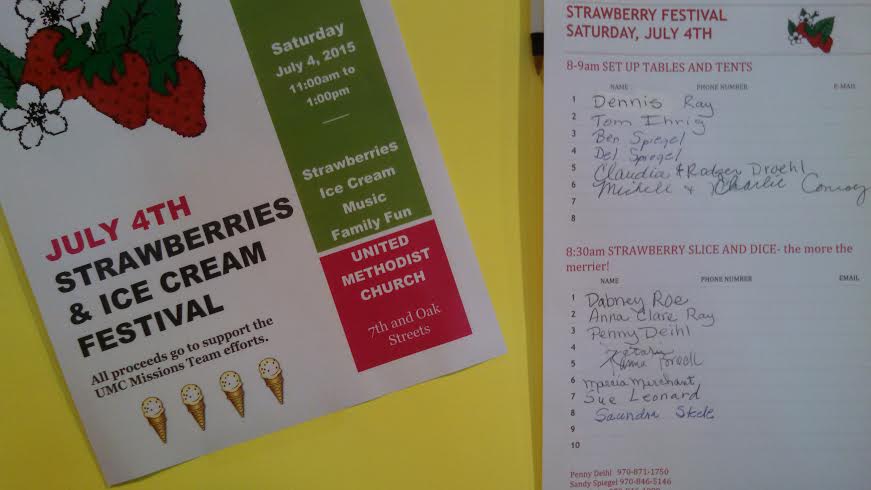 Saturday
July 4, 2015
11:00am to
1:00pm
Strawberries
Ice Cream
Music
Family Fun
UNITED
METHODIST
CHURCH
7th and Oak
Streets
JULY 4TH
STRAWBERRIES
& ICE CREAM
FESTIVAL
All proceeds go to support the
UMC Missions Team efforts.
STRAWBERRY FESTIVAL
SATURDAY, JULY 4TH
8-9am SET UP TABLES AND TENTS
NAME PHONE NUMBER E-MAIL
1 Dennis Ray
2 Tom Ihrig
3 Ben Spiegel
4 Del Spiegel
5 Claudia & Rodger Droehl
6 Michell & Charlie Conroy
7
8
8:30am STRAWBERRY SLICE AND DICE- the more the
merrier!
NAME PHONE NUMBER EMAIL
1 Dabney Roe
2 Anna Clare Ray
3 Penny Deihl
4
5
6 Marcia Merchant
7 Sue Leonard
8 Saundra Steele
9
10
Penny Deihl 970-871-1750
Sandy Spiegel 970-846-5146